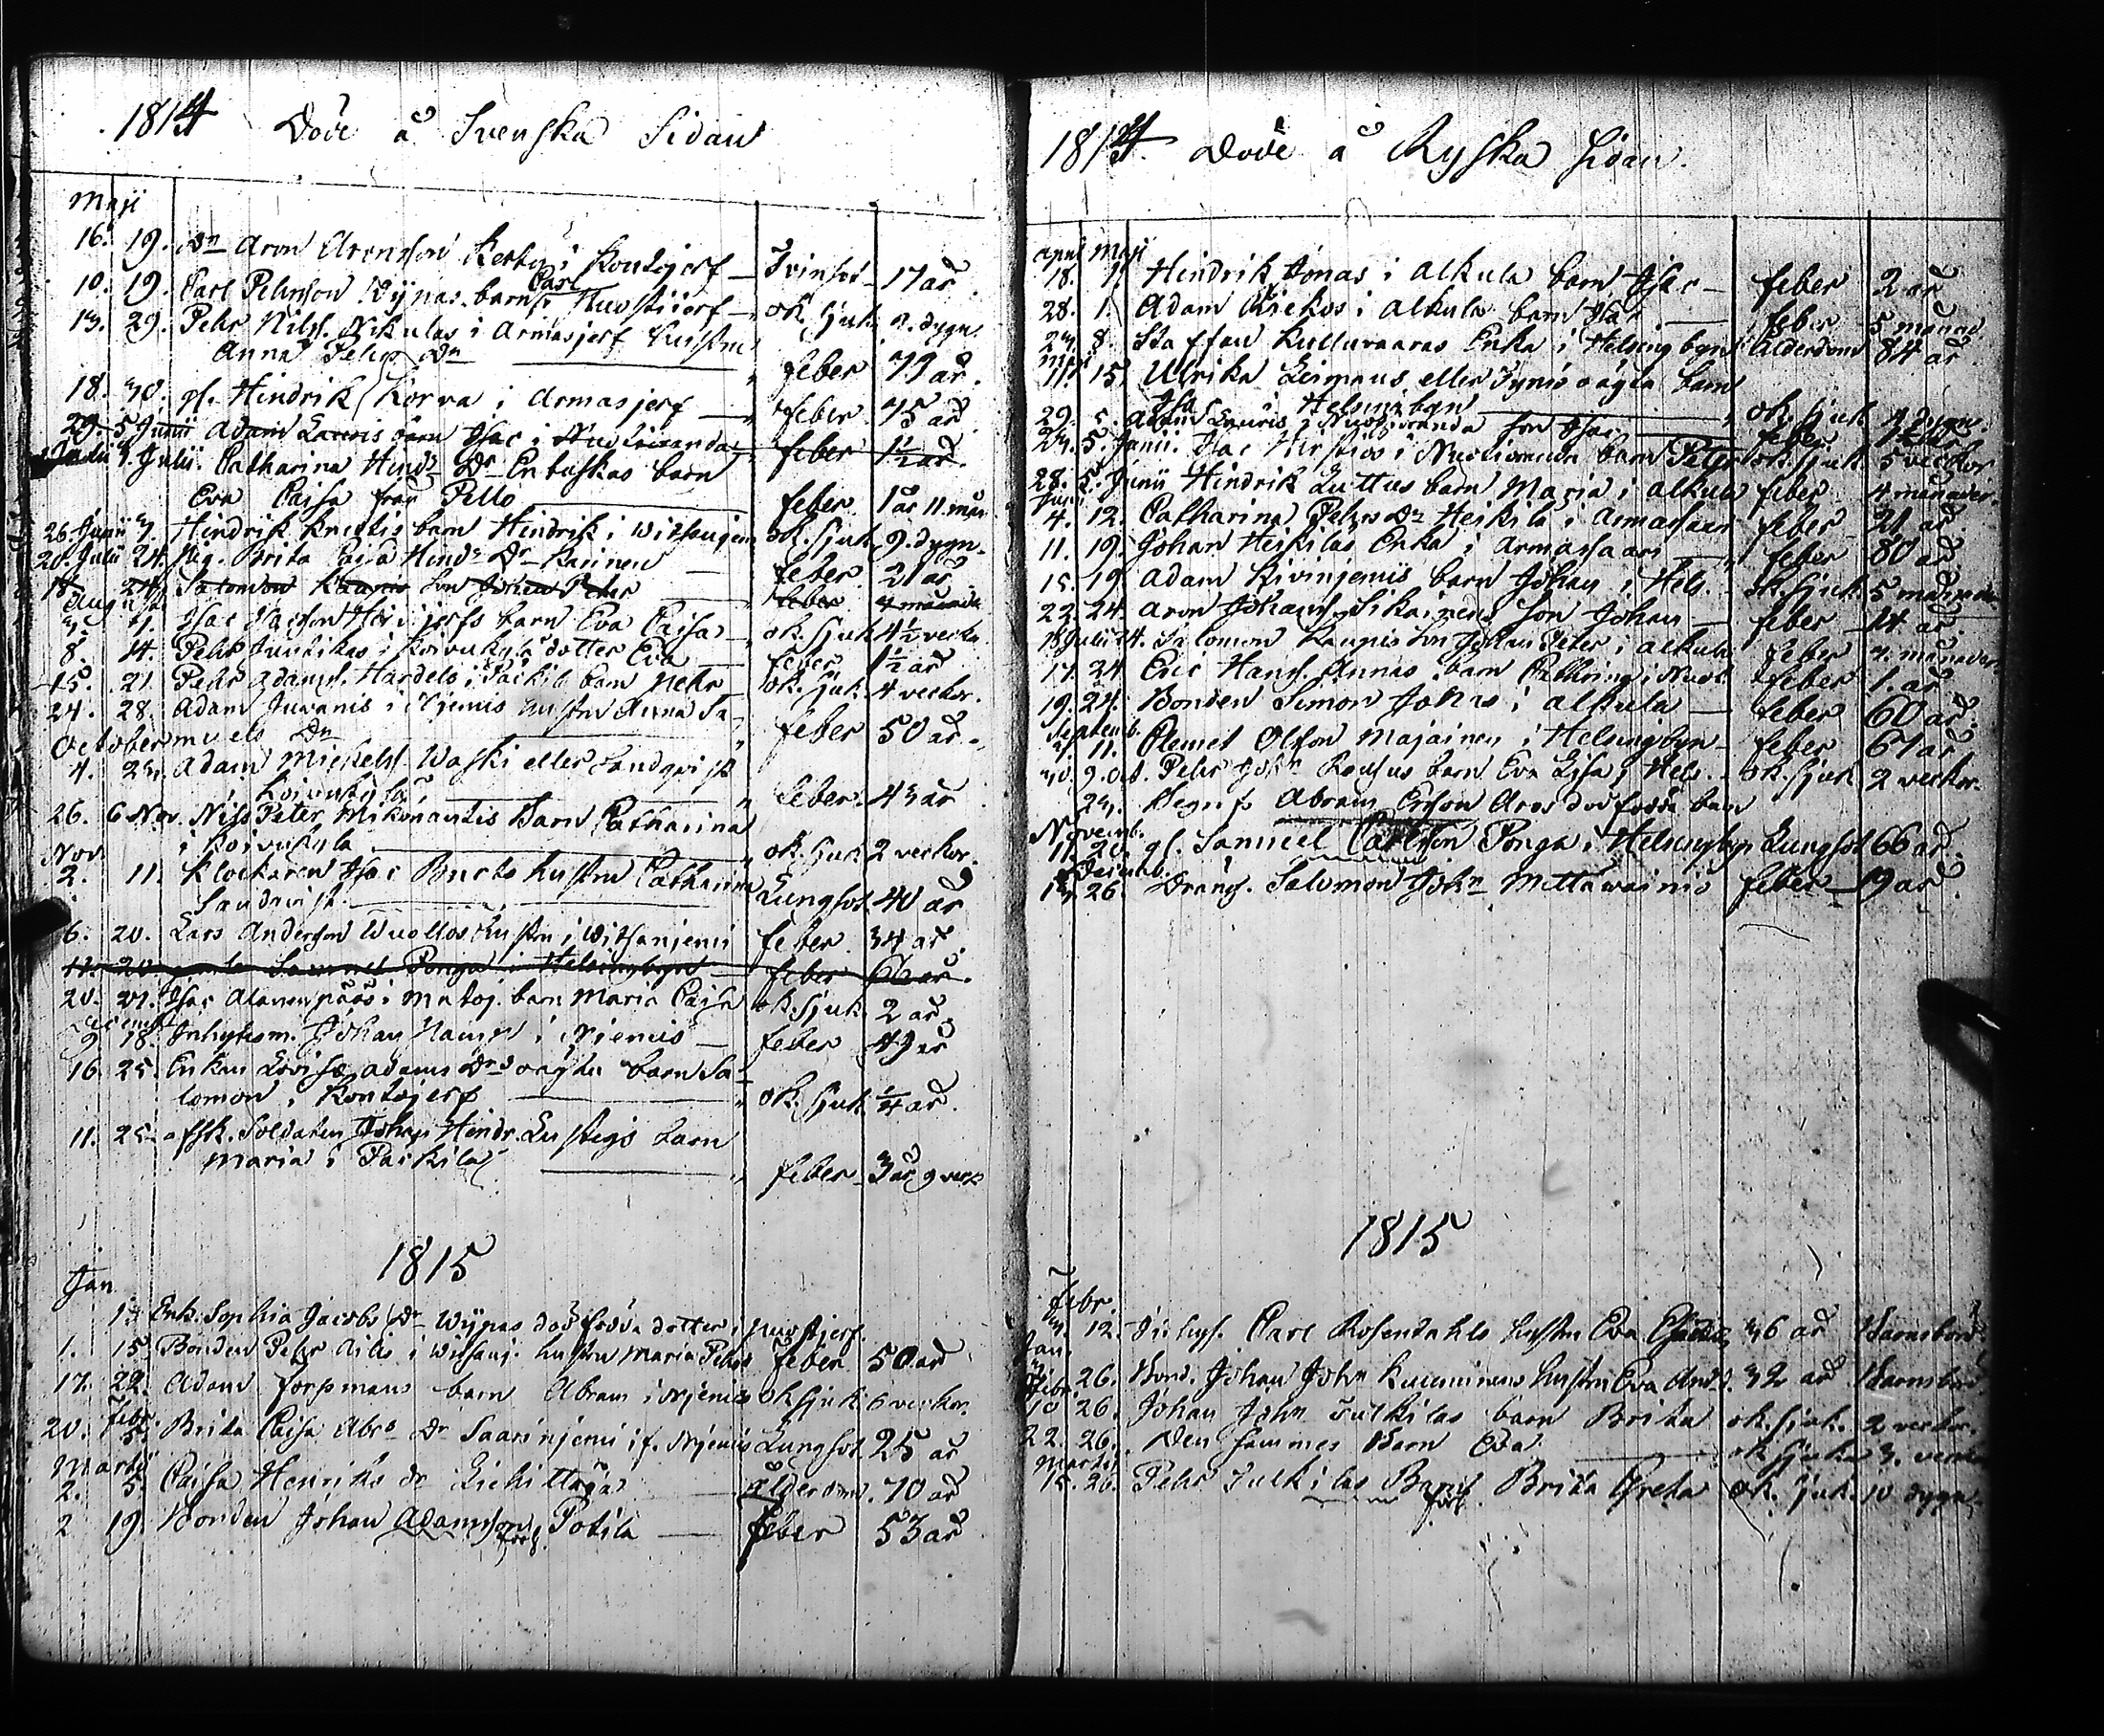 1814 Döde å Svenska Sidan
Maji
16. 19. Dn Aron Aronsson Kerty i Kontojerf — Tvinsot 17 år
10. 19. Carl Pehrsson Wynas barn Carl Nuostijerf — ok. sjuk. 9. dygn.
13. 29. Pehr Nilss. Nikulas i Armasjerf hustru
Anna Pehrs Dr — feber 79 år.
18. 30. gl. Hindrik Korva i Armasjerf — feber 75 år.
29. 5 Junii Adam Lauris barn Isac i Nuotioranda feber 1½ år.
3. Julii. Catharina Hind: Dr barn
Eva Caisa från Pello — feber 1 år 11. mån
26. Junii 3. Hindrik barn Hindrik i Witsanjem ok. sjuk. 9. dygn.
20. Julii 24. Pig. Brita Cajsa Hind: Dr Karinen — feber 21 år.
18. 24. Salomon Kaupis son Johan Peter — feber 4 månader
Augusti
3. 7. Isac Isacsson jerfs barn Eva Caisa — ok. sjuk 4½ veckor.
8. 14. Pehr Juntikas i Koivukylä dotter Eva — feber 1½ år
15. 21 Pehr Adams. Hardelo i Päckilä barn Pehr — ok. sjuk. 4 veckor.
24. 28. Adam Juvanis i Njemis hustru Anna Sa-
muels Dr — feber 50 år.
October
4. 23. Adam Mickels. Waski eller Landqvist
i Koivukylä — feber. 43 år
26. 6 Nov. Nils Peter Mikonantis Barn Catharina
i Koivukyla — ok. sjuk 2 veckor.
Nov.
2. 11. Klockaren Isac Buchts hustru Catharina
Sandqvist — Lungsot. 40 år
6. 20. Lars Andersson Wuollos hustru i Witsanjemi feber. 34 år.
11. 20. gamle Samuel Ponga i Helsingbyn — feber 66 år.
20. 27. Isac Alanenpääs i Matoj. barn Maria Caisa ok. sjuk. 2 år.
Decemb.
9 18. Inhyses m. Johan i Njemis — feber 49 år
16. 25. Enkan Lovisa Adams Dr:s oägta barn Sa-
lomon i Kontojerf — ok. sjuk. ¼ år.
11. 25. afsk. Soldaten Johan Hindr. Lustigs barn
Maria i Päckilä — feber 3 år 9 veck
1815
Jan.
1. Enk. Sophia Jacobs Dr Wynas dödfödda dotter i Nuostijerf.
1. 15. Bonden Pehr Nilis i Witsanj. hustru Maria Pehrs feber 50 år
17. 22. Adam Forsmans barn Abram i Njemis ok sjuk 6 veckor.
Febr.
20. 5. Brita Caisa Abr:s Dr Saarinjemi i f. Njemis Lungsot. 25 år
Martii
2. 5. Caisa Henriks dr — ålderdom. 70 år
2 19. Bonden Johan Adamsson Potila — feber 53 år
1814. Döde å Ryska Sidan.
April Maji
18. 1. Hindrik Jonas i Alkula barn Isac — feber 2 år
28. 1. Adam Kiekos i Alkula barn Isac — feber 5 månad
23. 8. Staffan Kulluvaaras Enka i Helsingbyn Ålderdom 84 år
Maji
11. 15. Ulrika Leimaus eller oägta barn
Isa Helsingbyn — ok. sjuk 4 dygn.
29. 5. Adam Lauris i Nuotioranda son Isac — feber 1½ år
23. 5. Junii. Isac i Nuotioranda barn Peter ok. sjuk 5 veckor
28. 5. Junii Hindrik Luttus barn Maria i Alkula feber 4 månader.
Junii
4. 12. Catharina Pehrs Dr Heikila i Armassaari feber 21 år.
11. 19. Johan Heikilas Enka i Armassaari — feber 80 år
15. 19. Adam Kivinjemis barn Johan i Hels. ok. sjuk 5 månader
22. 24. Aron Johans. Sikainens son Johan — feber 14 år.
18 Julii 24. Salomon Kaupis son Johan Peter i Alkula feber 4. månader
17. 24. Eric Hans. Annis barn Cathrina i Nuot. feber 1. år
19. 24. Bonden Simon Johns i Alkula — feber 60 år.
Septemb.
4. 11. Clemet Olsson Majainen i Helsingbyn — feber 67 år
30. 9. Oct. Pehr Johs. barn Eva Lisa i Hels. ok. sjuk 2 veckor.
23. Abram Ersson dödfödda barn
Novemb.
11. 20. gl. Samuel Carlsson Ponga i Helsingbyn Lungsot 66 år
Decemb.
13 26. Dräng. Salomon Johs. Mettävainio feber — 19 år.
1815
Febr.
3. 12. Carl Rosendahls hustru Eva 36 år Barnsbörd
Jan.
26. Bond. Johan Johs Kuuminens hustru Eva And: 32 år Barnsbörd
Febr.
10 26. Johan Johs Tulkilas barn Brita ok. sjuk. 2 veckor.
22. 26. Den sammes Barn Eva — ok. sjuka 3. veckor
Martii
15. 26. Pehr Tulkilas Barn Brita Greta ok. sjuk. 10 dygn.